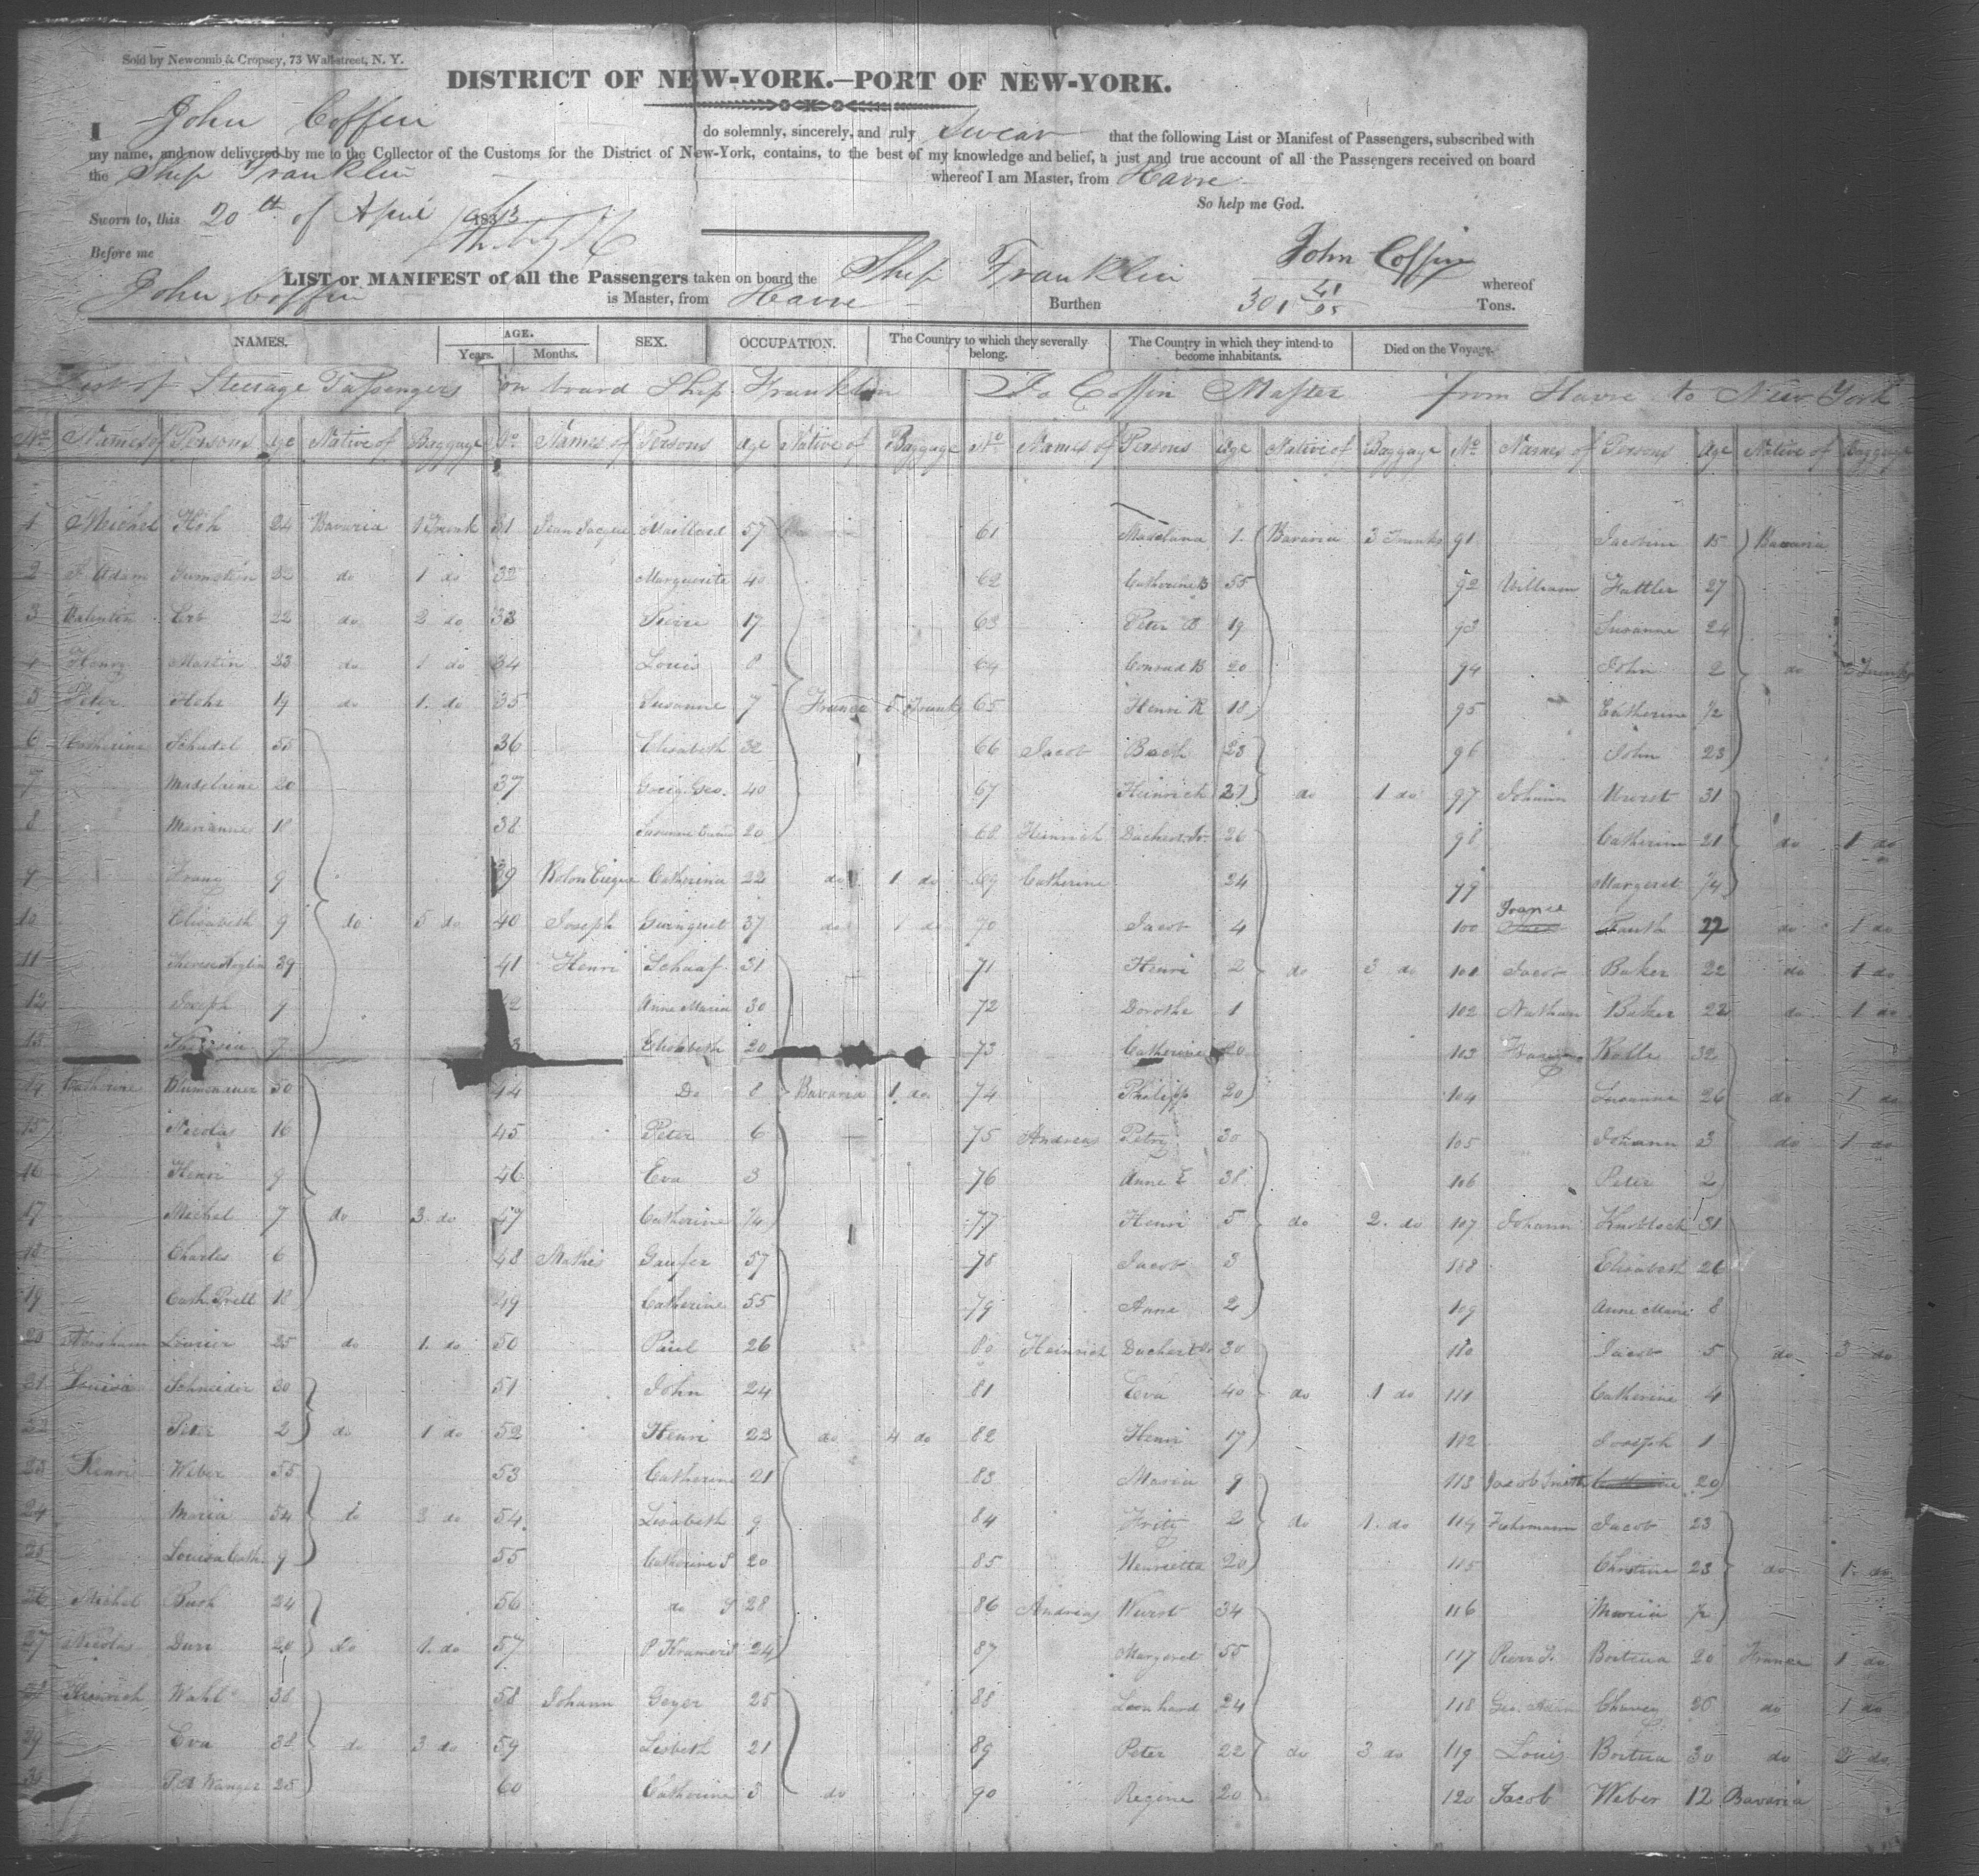 Sold by Newcomb & Cropsey, 73 Wall-street, N. Y.
DISTRICT OF NEW-YORK.—PORT OF NEW-YORK.
I John Coffin do solemnly, sincerely, and ruly Swear that the following List or Manifest of Passengers, subscribed with
my name, and now delivered by me to the Collector of the Customs for the District of New-York, contains, to the best of my knowledge and belief, a just and true account of all the Passengers received on board
the Ship Franklin whereof I am Master, from Havre
So help me God.
Sworn to, this 20th of April 1833
Before me
John Coffin
LIST or MANIFEST of all the Passengers taken on board the Ship Franklin whereof
John Coffin is Master, from Havre Burthen 301 41/95 Tons.
NAMES. AGE. Years. Months. SEX. OCCUPATION. The Country to which they severally belong. The Country in which they intend to become inhabitants. Died on the Voyage.
List of Steerage Passengers on board Ship Franklin Coffin Master from Havre to New York
No Names of Persons Age Native of Baggage No Names of Persons Age Native of Baggage No Names of Persons Age Native of Baggage No Names of Persons Age Native of Baggage
1 Michel Hoh 24 Bavaria 1 Trunk
2 F. Adam 32 do 1 do
3 Valentin Erb 22 do 2 do
4 Henry Martin 33 do 1 do
5 Peter Hohr 19 do 1. do
6 Catherine Schadel 55
7 Madelaine 20
8 Marianne 18
9 Franz 9
10 Elisabeth 9 do 5 do
11 39
12 Joseph 9
13 7
14 Catherine Blumenauer 50
15 Nicolas 16
16 Henri 9
17 Michel 7 do 3 do
18 Charles 6
19 Cath. Prell 18
20 Abraham 25 do 1. do
21 Louisa Schneider 30
22 Peter 2 do 1 do
23 Henri Weber 55
24 Maria 54 do 3 do
25 Louisa Cath. 9
26 Michel Bush 24
27 Nicolas Durr 20 do 1. do
28 Heinrich Wahl 38
29 Eva 38 do 3 do
30 Wanger 25
31 Jean Jacque Maillard 57
32 Marguerite 40
33 Pierre 17
34 Louis 8
35 Susanne 7 France 5 Trunks
36 Elisabeth 32
37 Geo. 40
38 20
39 Catherina 22 do 1 do
40 Joseph 37 do 1 do
41 Henri Schaaf 31
42 Anne Maria 30
43 Elisabeth 20
44 Do 8 Bavaria 1 do
45 Peter 6
46 Eva 3
47 Catherine 1/4
48 Mathis 57
49 Catherine 55
50 Paul 26
51 John 24
52 Henri 23 do 4 do
53 Catherine 21
54 Lisabeth 9
55 Catherine S 20
56 do S 28
57 P Kramer S 24
58 Johann Geyer 25
59 Lisbeth 21
60 Catherine 3 do
61 Madelana 1. Bavaria 3 Trunks
62 Catherine B 55
63 Peter B 19
64 Conrad B 20
65 Henri R 18
66 Jacob Bach 23
67 Heinrich 27 do 1 do
68 Heinrich Dachert 36
69 Catherine 34
70 Jacob 4
71 Henri 2 do 3 do
72 Dorothe 1
73 Catherine 20
74 Philipp 20
75 Andreas Petry 30
76 Anne E 38
77 Henri 5 do 2. do
78 Jacob 3
79 Anne 2
80 Heinrich Dachert 30
81 Eva 40 do 1 do
82 Henri 17
83 Maria 9
84 Fritz 2 do 1. do
85 Henrietta 20
86 Andreas Wurst 34
87 Margaret 55
88 Leonhard 24
89 Peter 22 do 3 do
90 Regine 20
91 Jacobine 15 Bavaria
92 William Hattler 27
93 Susanne 24
94 John 2 do 2 Trunks
95 Catherine 1/2
96 John 23
97 Johann Wurst 31
98 Catherine 21 do 1 do
99 Margaret 1/4
100 Fauth 27 do 1 do
101 Jacob Baker 22 do 1 do
102 Nathan Baker 22 do 1 do
103 Rolle 32
104 Susanne 26 do 1 do
105 Johann 3 do 1 do
106 Peter 2
107 Johann Knobloch 31
108 Elisabeth 26
109 Anne Marie 8
110 Jacob 5 do 3 do
111 Catherine 4
112 Joseph 1
113 Jacob Smith 20
114 Fuhrmann Jacob 23
115 Christine 23 do 1. do
116 Maria 1/2
117 Pierre F. 20 France 1 do
118 Geo. 36 do 1 do
119 Louis 30 do 2 do
120 Jacob Weber 12 Bavaria